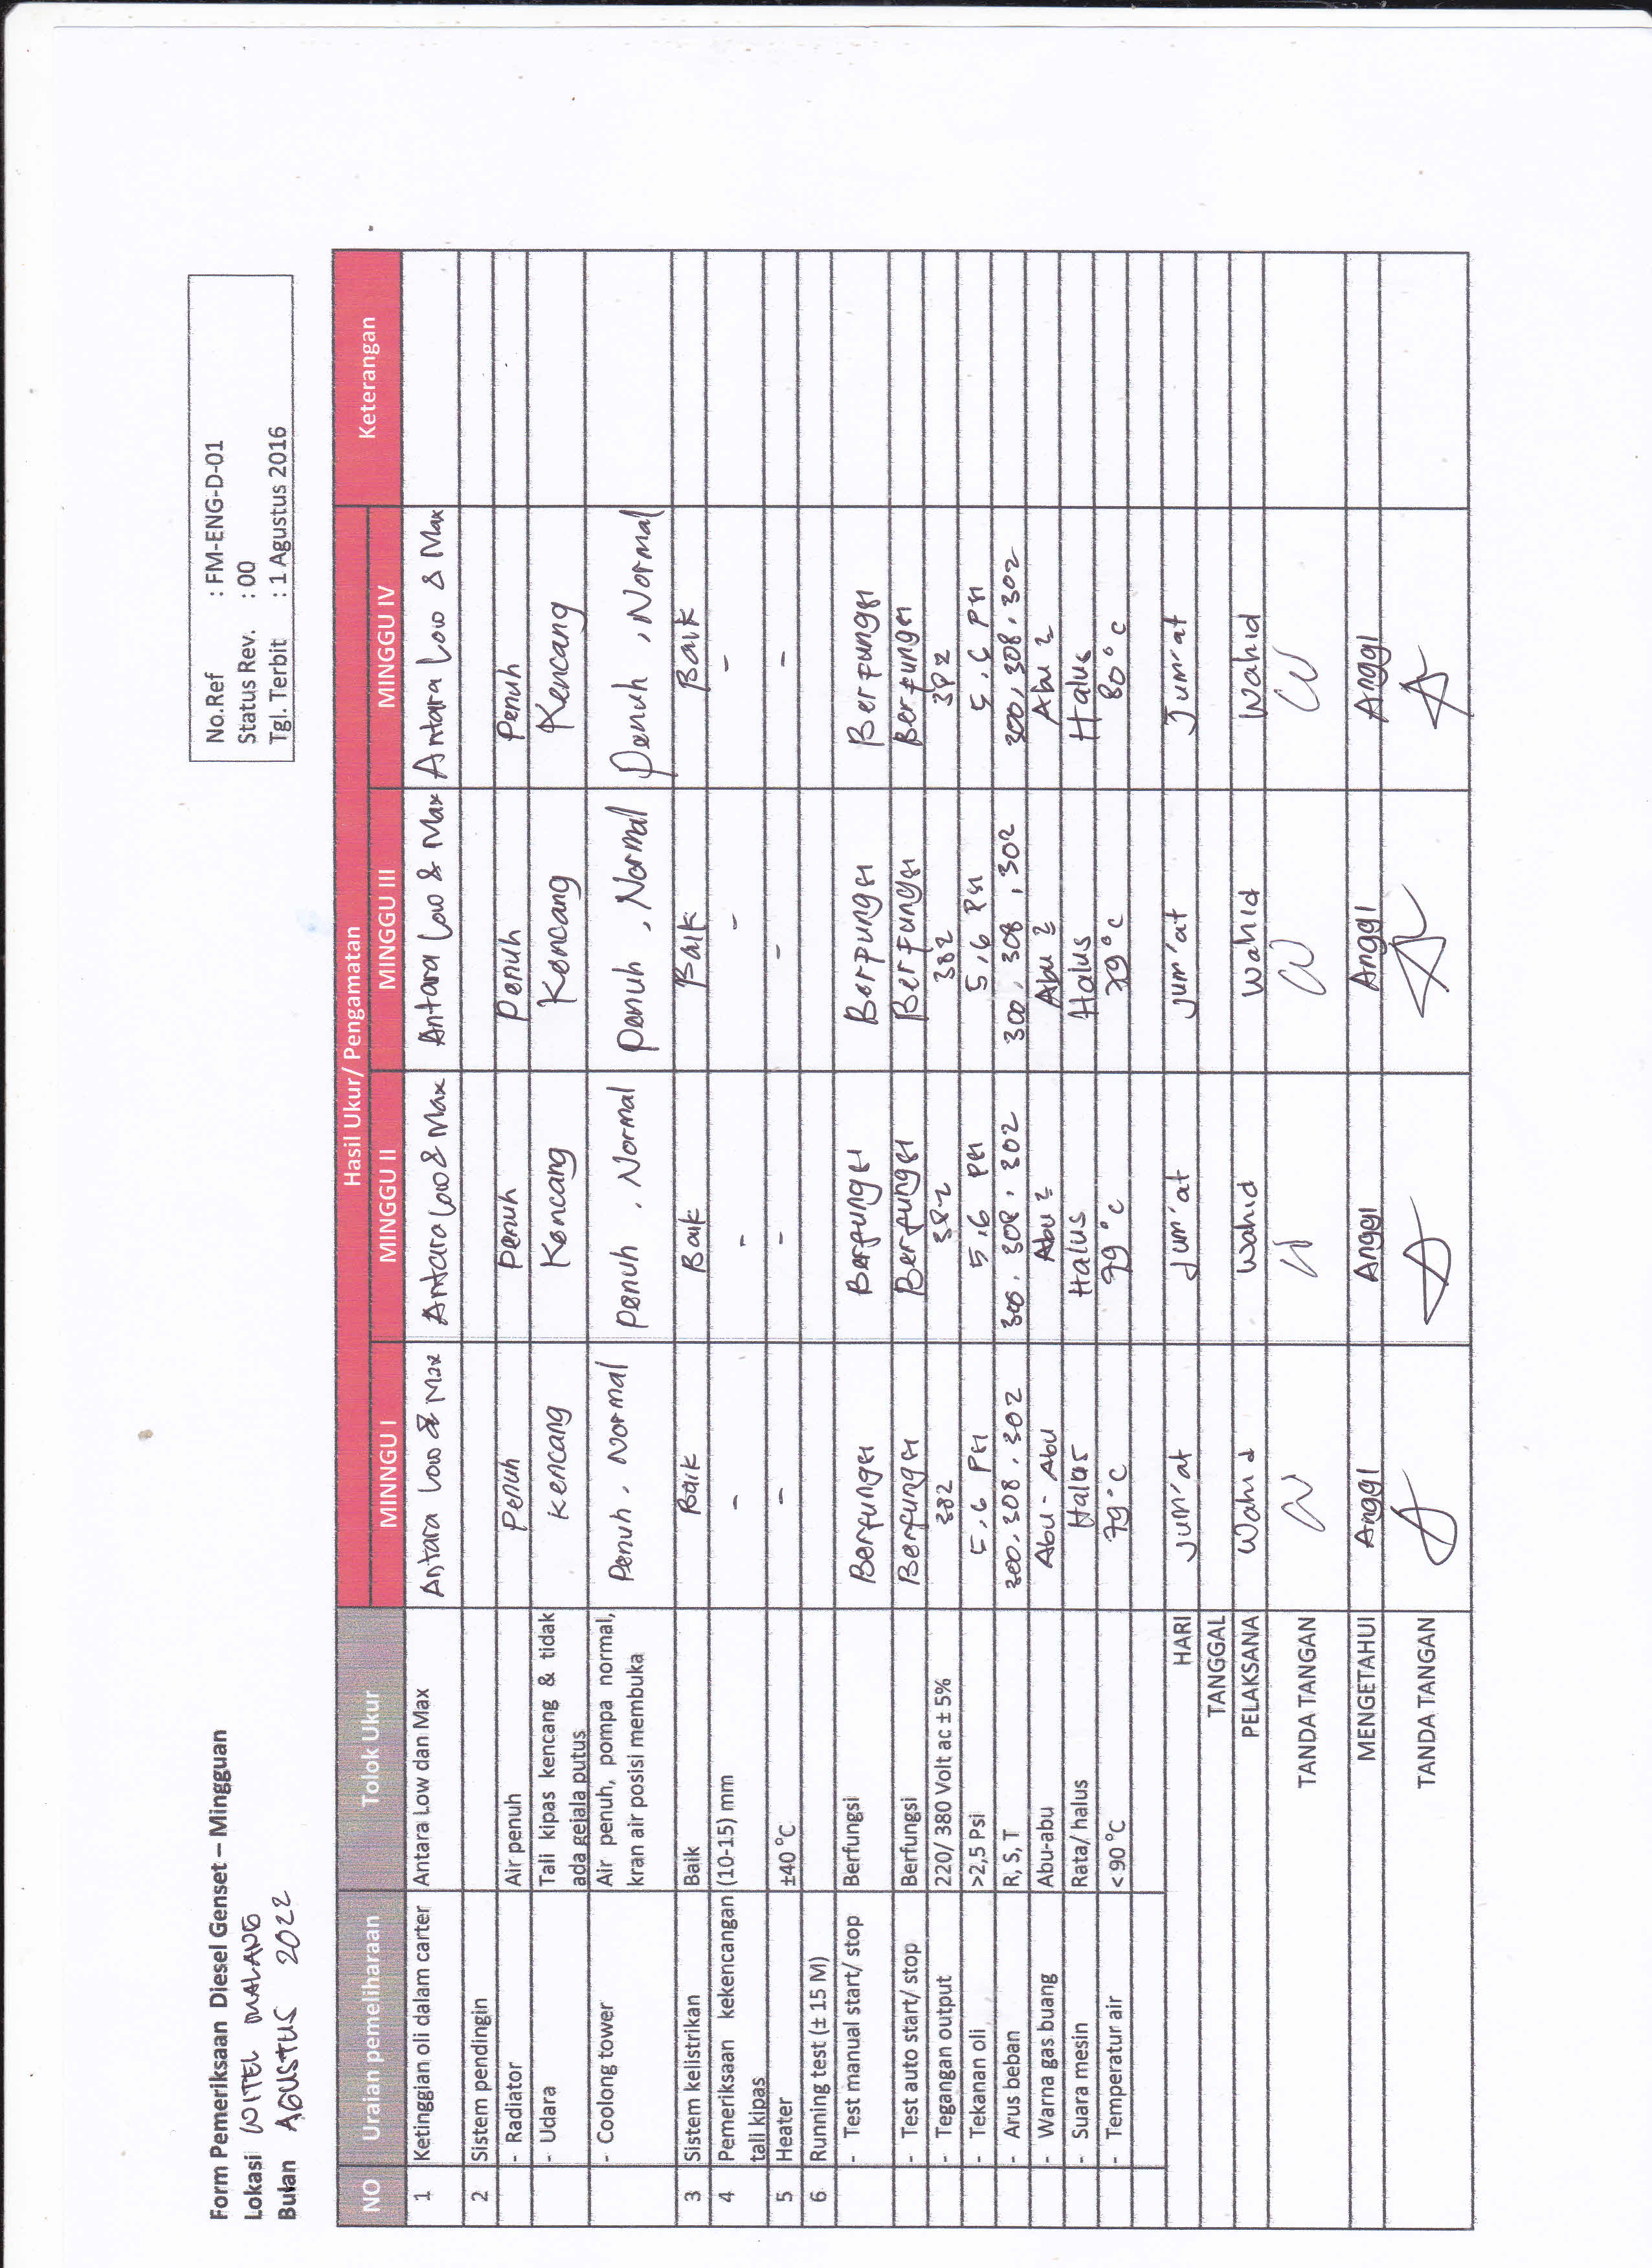 Form Pemeriksaan Diesel Genset – Mingguan
Lokasi WITEL MALANG
Bulan AGUSTUS 2022
No.Ref : FM-ENG-D-01
Status Rev. : 00
Tgl. Terbit : 1 Agustus 2016
NO Uraian pemeliharaan Tolok Ukur Hasil Ukur/ Pengamatan Keterangan
MINNGU I MINGGU II MINGGU III MINGGU IV
1 Ketinggian oli dalam carter Antara Low dan Max Antara Low & Max Antara Low & Max Antara Low & Max Antara Low & Max
2 Sistem pendingin
- Radiator Air penuh Penuh Penuh Penuh Penuh
- Udara Tali kipas kencang & tidak Kencang Kencang Kencang Kencang
ada gejala putus
- Coolong tower Air penuh, pompa normal, Penuh, Normal Penuh, Normal Penuh, Normal Penuh, Normal
kran air posisi membuka
3 Sistem kelistrikan Baik Baik Baik Baik Baik
4 Pemeriksaan kekencangan (10-15) mm - - - -
tali kipas
5 Heater ±40 °C - - - -
6 Running test (± 15 M)
- Test manual start/ stop Berfungsi Berfungsi Berfungsi Berfungsi Berfungsi
- Test auto start/ stop Berfungsi Berfungsi Berfungsi Berfungsi Berfungsi
- Tegangan output 220/ 380 Volt ac ± 5% 382 382 382 382
- Tekanan oli >2,5 Psi 5,6 Psi 5,6 Psi 5,6 Psi 5,6 Psi
- Arus beban R, S, T 300, 308, 302 300, 308, 302 300, 308, 302 300, 308, 302
- Warna gas buang Abu-abu Abu-Abu Abu 2 Abu 2 Abu 2
- Suara mesin Rata/ halus Halus Halus Halus Halus
- Temperatur air < 90 °C 79°C 79°C 79°C 80°C
HARI Jum'at Jum'at Jum'at Jum'at
TANGGAL
PELAKSANA Wahid Wahid Wahid Wahid
TANDA TANGAN
MENGETAHUI Anggi Anggi Anggi Anggi
TANDA TANGAN